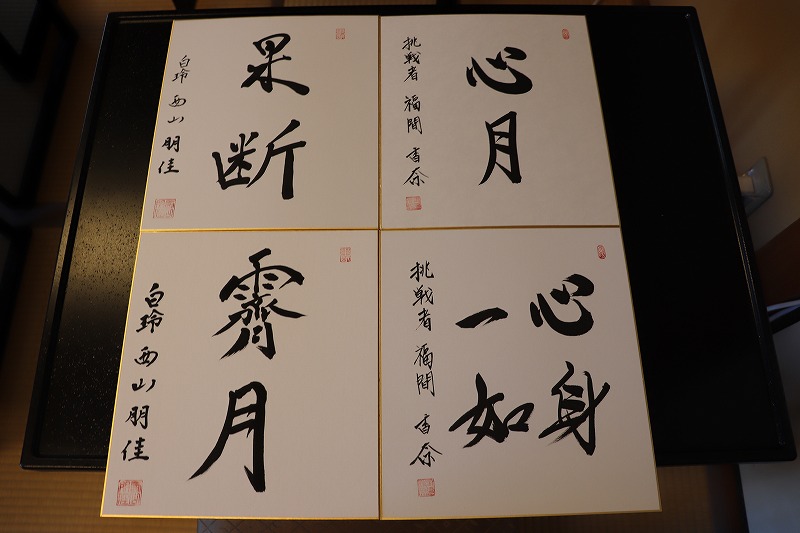 果断
白玲 西山朋佳
心月
挑戦者 福間 香奈
霽月
白玲 西山朋佳
心身
一如
挑戦者 福間 香奈